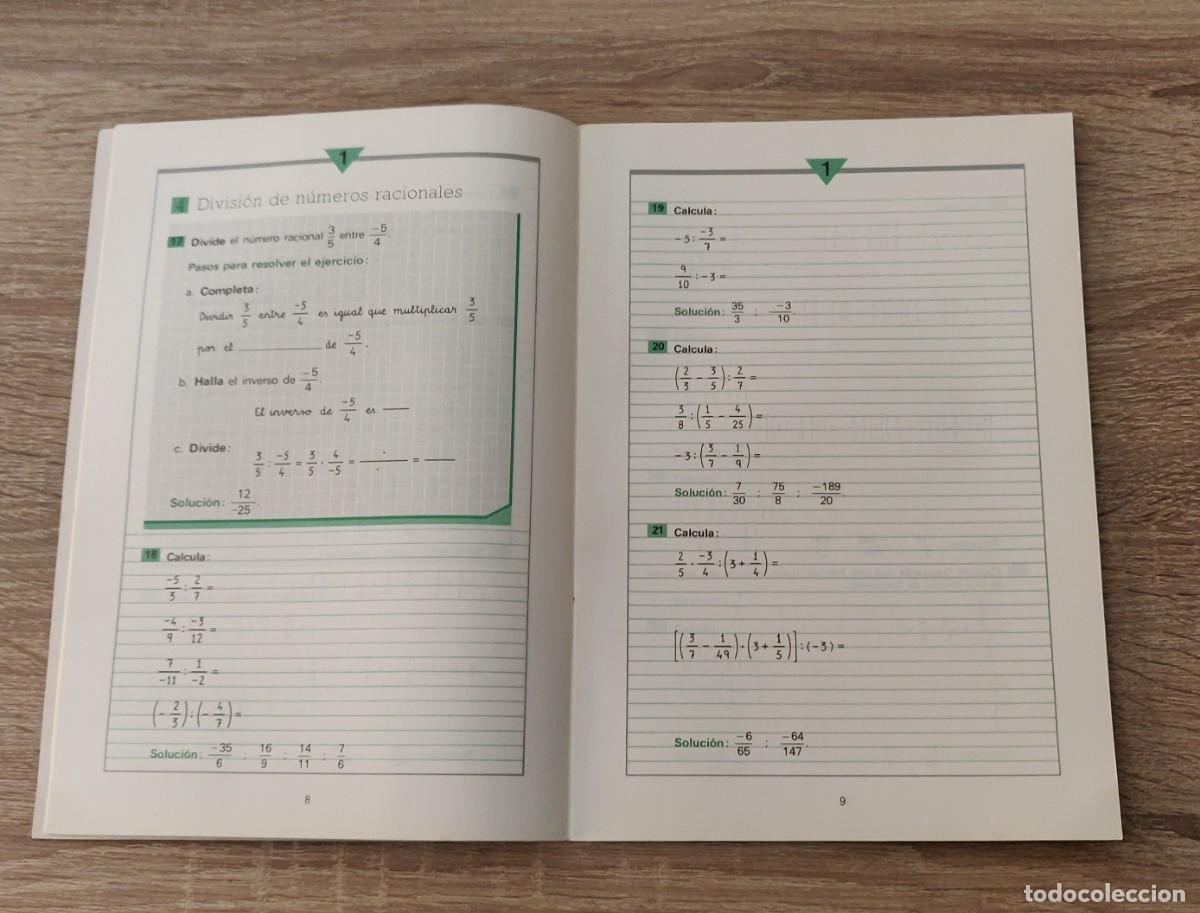 1
4 División de números racionales
17 Divide el número racional 3/5 entre -5/4.
Pasos para resolver el ejercicio:
a. Completa:
Dividir 3/5 entre -5/4 es igual que multiplicar 3/5
por el ____________ de -5/4.
b. Halla el inverso de -5/4.
El inverso de -5/4 es ____
c. Divide:
3/5 : -5/4 = 3/5 · 4/-5 = ____ · ____ = ____
Solución: 12/-25.
18 Calcula:
-5/3 : 2/7 =
-4/9 : -3/12 =
7/-11 : 1/-2 =
(- 2/3) : (- 4/7) =
Solución: -35/6 ; 16/9 ; 14/11 ; 7/6
8
1
19 Calcula:
-5 : -3/7 =
9/10 : -3 =
Solución: 35/3 ; -3/10.
20 Calcula:
(2/3 - 3/5) : 2/7 =
3/8 : (1/5 - 4/25) =
-3 : (3/7 - 1/9) =
Solución: 7/30 ; 75/8 ; -189/20.
21 Calcula:
2/5 · -3/4 : (3 + 1/4) =
[(3/7 - 1/49) · (3 + 1/5)] : (-3) =
Solución: -6/65 ; -64/147.
9
todocoleccion